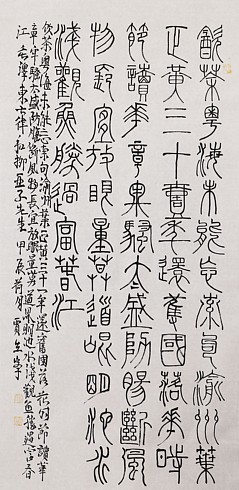 飲茶粤海未能忘索句渝州葉
正黄三十一年還舊國落花時
節讀華章牢騷太盛防腸斷風
物長宜放眼量莫道昆明池水
淺觀魚勝過富春江
飲茶粤海未能忘索句渝州葉正黄三十一年還舊國落花時節讀華
章牢騷太盛防腸斷風物長宜放眼量莫道昆明池水淺觀魚勝過富春
江 毛澤東七律 和柳亞子先生 甲辰荷月 賈生書